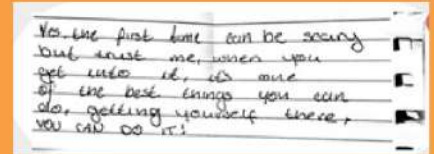 Yes the first time can be scary
but trust me, when you
get into it, it's one
of the best things you can
do, getting yourself there,
YOU CAN DO IT!